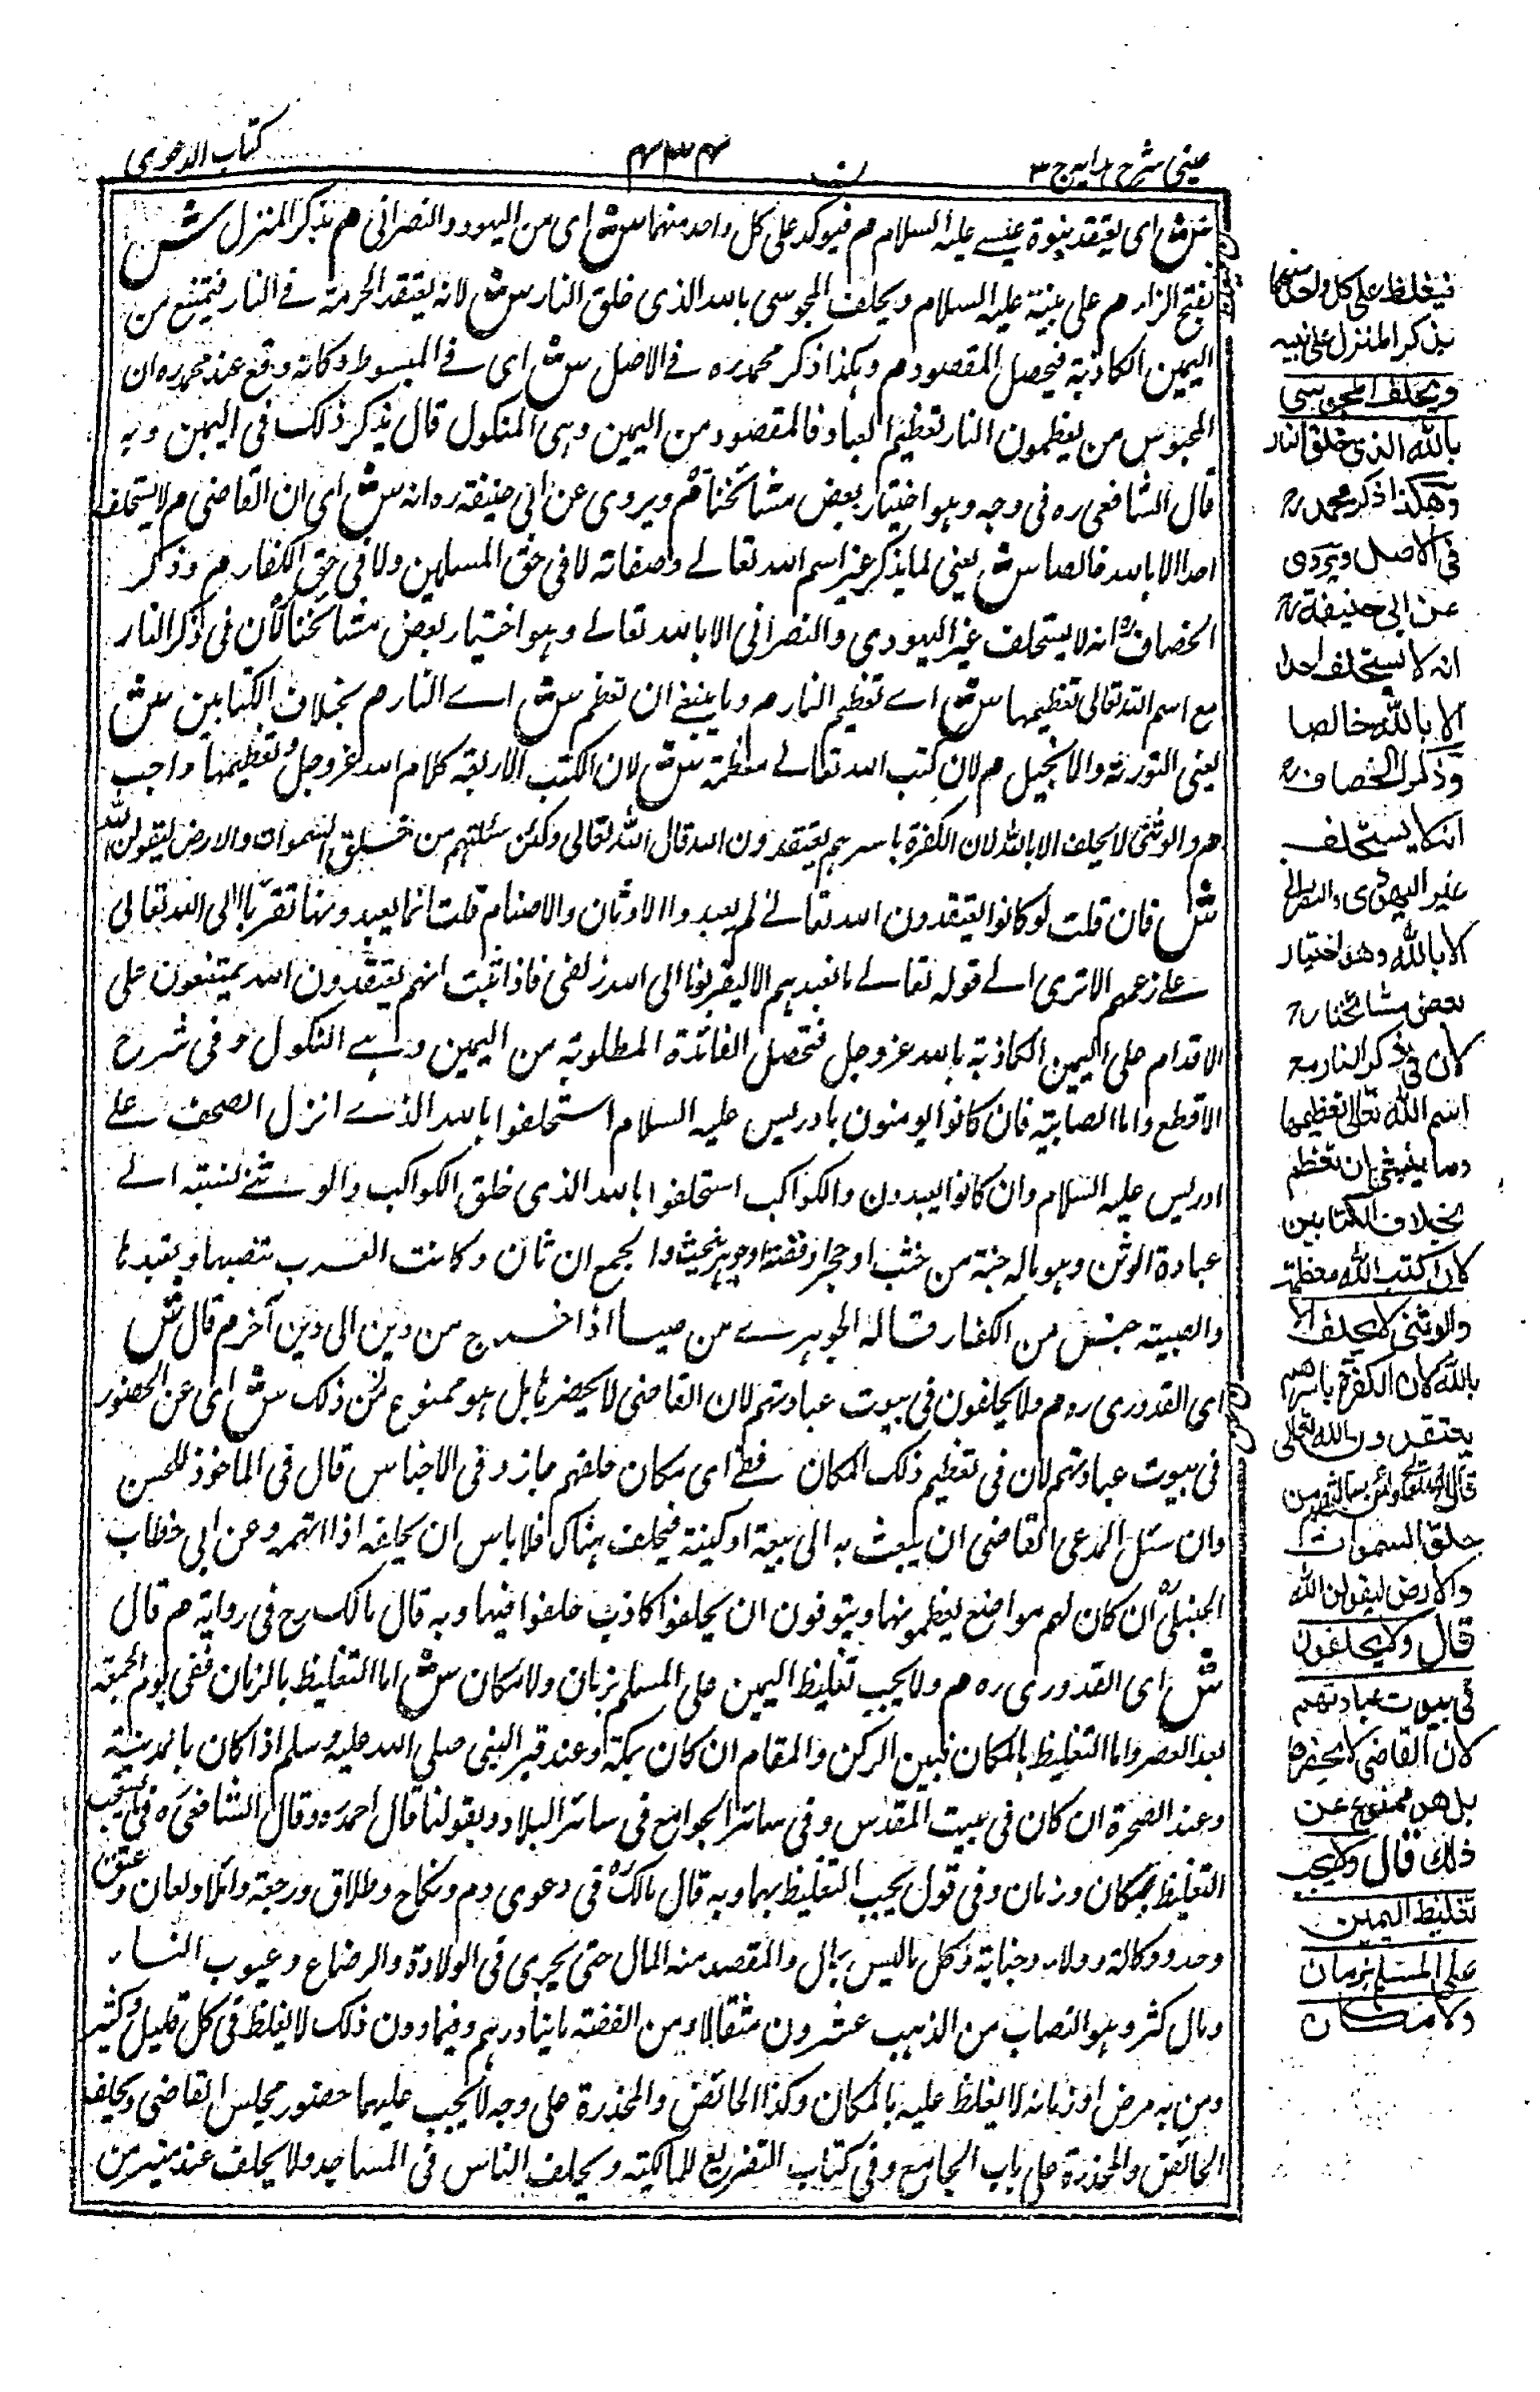 عینی شرح ہدایہ ج ٣
٣٤٣
کتاب الدعوی
ش ای یعتقد بنبوة عیسے علیہ السلام م فیوکد علی کل واحد منہما ش ای من الیہود والنصرانی م بذکر المنزل ش
بفتح الزاء م علی نبیہ علیہ السلام ویحلف المجوسی باللہ الذی خلق النار ش لانہ یعتقد الحرمۃ فے النار فیمتنع من
الیمین الکاذبۃ فیحصل المقصود م وہکذا ذکر محمد رہ فے الاصل ش ای فے المبسوط وکانہ وقع عند محمد رہ ان
المجوس من یعظمون النار تعظیم العباد فالمقصود من الیمین وہی النکول قال یذکر ذلک فی الیمین وبہ
قال الشافعی رہ فی وجہ وہو اختیار بعض مشائخنا م ویروی عن ابی حنیفۃ رہ انہ ش ای ان القاضی م لا یستحلف
احدا الا باللہ خالصا ش یعنی لما یذکر غیر اسم اللہ تعالے وصفاتہ لا فی حق المسلمین ولا فی حق الکفار م وذکر
الخصاف رہ انہ لا یستحلف غیر الیہودی والنصرانی الا باللہ تعالے وہو اختیار بعض مشائخنا لان فی ذکر النار
مع اسم اللہ تعالی تعظیمہا ش اے تعظیم النار م وما ینبغے ان تعظم ش اے النار م بخلاف الکتابین ش
یعنی التوریۃ والانجیل م لان کتب اللہ تعالے معظمۃ ش لان الکتب الاربعۃ کلام اللہ عز وجل وتعظیمہا واجب
م والوثنی لا یحلف الا باللہ لان الکفرة باسرہم یعتقدون اللہ قال اللہ تعالی ولئن سئلتہم من خلق السموات والارض لیقولن اللہ
ش فان قلت لو کانوا یعتقدون اللہ تعالے لم یعبدوا الاوثان والاصنام قلت انما یعبدونہا تقربا الی اللہ تعالی
علے زعمہم الا تری الے قولہ تعالے ما نعبدہم الا لیقربونا الی اللہ زلفی فاذا ثبت انہم یعتقدون اللہ یمتنعون علی
الاقدام علی الیمین الکاذبۃ باللہ عز وجل فتحصل الفائدة المطلوبۃ من الیمین وہے النکول وفی شرح
الاقطع واما الصابیۃ فان کانوا یومنون بادریس علیہ السلام استحلفوا باللہ الذے انزل الصحف علے
ادریس علیہ السلام وان کانوا یعبدون والکواکب استحلفوا باللہ الذی خلق الکواکب والوثنے نسبتہ الے
عبادة الوثن وہو مالہ جثۃ من خشب او حجر او فضۃ او جوہر ینحت والجمع اوثان وکانت العرب تنصبہا وتعبدہا
والصبیۃ جنس من الکفار قالہ الجوہرے من صبا اذا خرج من دین الی دین آخر م قال ش
ای القدوری رہ م ولا یحلفون فی بیوت عبادتہم لان القاضی لا یحضرہا بل ہو ممنوع عن ذلک ش ای عن الحضور
فی بیوت عبادتہم لان فی تعظیم ذلک المکان ففے ای مکان حلفہم جاز وفی الاجناس قال فی الماخوذ للحسن
وان سئل المدعی القاضی ان یبعث بہ الی بیعۃ او کنیسۃ فیحلف ہناک فلا باس ان یحلفہ اذا اتہمہ وعن ابی خطاب
الحنبلی ان کان لہم مواضع یعظمونہا ویتوقون ان یحلفوا کاذب حلفوا فیہا وبہ قال مالک رح فی روایۃ م قال
ش ای القدوری رہ م ولا یجب تغلیظ الیمین علی المسلم بزمان ولا مکان ش اما التغلیظ بالزمان ففی یوم الجمعۃ
بعد العصر واما التغلیظ بالمکان فبین الرکن والمقام ان کان بمکۃ او عند قبر النبی صلی اللہ علیہ وسلم اذا کان بالمدینۃ
وعند الصخرة ان کان فی بیت المقدس وفی سائر الجوامع فی سائر البلاد وبقولنا قال احمد رہ وقال الشافعی رہ فی یستحب
التغلیظ بمکان وزمان وفی قول یجب التغلیظ بہما وبہ قال مالک فی دعوی دم ونکاح وطلاق ورجعۃ وایلاء ولعان وعتق
وحد ووکالۃ وولاء وجنایۃ وکل ما لیس بمال والمقصد منہ المال حتی یجری فی الولادة والرضاع وعیوب النساء
ومال کثر وہو النصاب من الذہب عشرون مثقالا ومن الفضۃ مایتا درہم وفیما دون ذلک لا یغلظ فی کل قلیل وکثیر
ومن بہ مرض او زمانۃ لا یغلظ علیہ بالمکان وکذا الحائض والمخدرة علی وجہ لا یجب علیہما حضور مجلس القاضی ویحلف
الحائض والمخدرة علی باب الجامع وفی کتاب التفریع للمالکیۃ ویحلف الناس فی المساجد ولا یحلف عند منبر من
فیغلظ علی کل واحد منہما
بذکر المنزل علی نبیہ
ویحلف المجوسی
باللہ الذی خلق النار
وھکذا ذکر محمد رح
فی الاصل ویروی
عن ابی حنیفة رح
انہ لا یستحلف احدا
الا باللہ خالصا
وذکر الخصاف رح
انہ لا یستحلف
غیر الیھودی والنصرانی
الا باللہ وھو اختیار
بعض مشائخنا رح
لان فی ذکر النار مع
اسم اللہ تعالی تعظیمھا
وما ینبغی ان تعظم
بخلاف الکتابین
لان کتب اللہ معظمة
والوثنی لا یحلف الا
باللہ لان الکفرة باسرھم
یعتقدون اللہ تعالی
قال اللہ تعالی ولئن سالتھم من
خلق السموات
والارض لیقولن اللہ
قال ولا یحلفون
فی بیوت عبادتھم
لان القاضی لا یحضرھا
بل ھو ممنوع عن
ذلک قال ولا یجب
تغلیظ الیمین
علی المسلم بزمان
ولا مکان